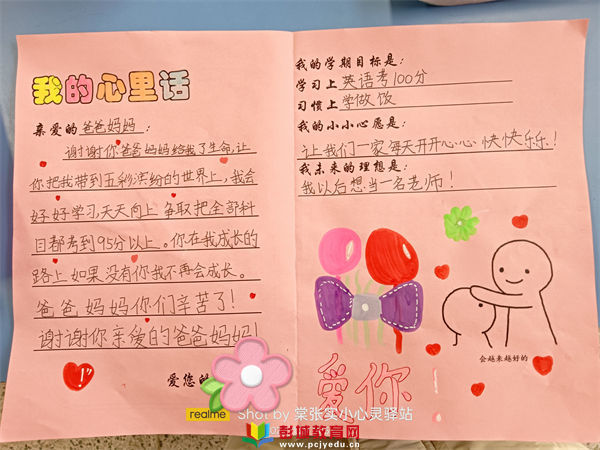 我的心里话
亲爱的爸爸妈妈：
谢谢你爸爸妈妈给我了生命，让
你把我带到五彩滨纷的世界上，我会
好好学习天天向上争取把全部科
目都考到95分以上。你在我成长的
路上如果没有你我不再会成长。
爸爸妈妈你们辛苦了！
谢谢你亲爱的爸爸妈妈！
爱您的
我的学期目标是：
学习上英语考100分
习惯上学做饭
我的小小心愿是：
让我们一家每天开开心心快快乐乐！
我未来的理想是：
我以后想当一名老师！
会越来越好的
爱你
realme
Shot by 棠张实小心灵驿站
彭城教育网
www.pcjyedu.cn